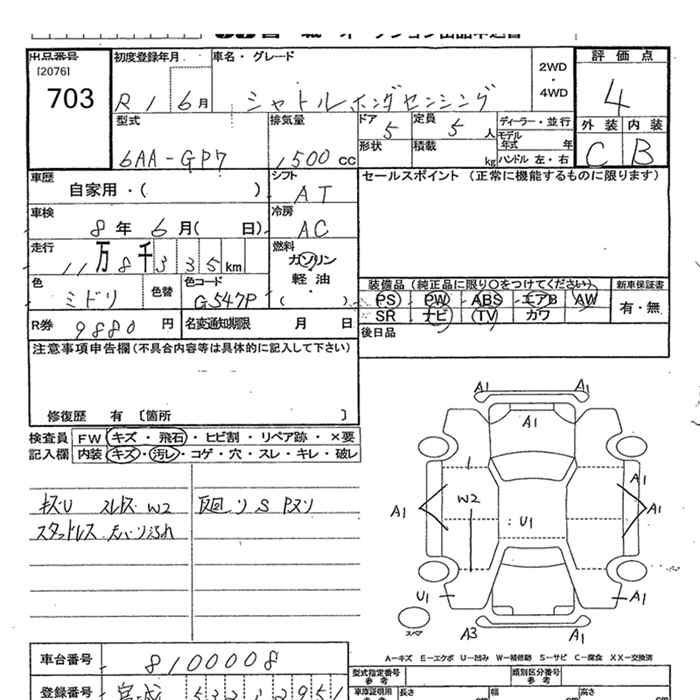 出品番号
[2076]
703
初度登録年月
R1 6月
車名・グレード
シャトルホンダセンシング
2WD
・
4WD
評価点
4
外装 内装
C B
型式
6AA-GP7
排気量
1500cc
ドア
5
定員
5人
形状
積載
kg
ディーラー・並行
モデル年式 年
ハンドル 左・右
車歴
自家用・( )
シフト
AT
セールスポイント (正常に機能するものに限ります)
車検
8年 6月( 日)
冷房
AC
走行
11万8千335km
燃料
ガソリン
軽油
( )
色
ミドリ
色替
色コード
G547P
装備品 (純正品に限り○をつけてください)
PS PW ABS エアB AW
SR ナビ TV カワ
新車保証書
有・無
R券
9880円
名変通知期限 月 日
後日品
注意事項申告欄(不具合内容等は具体的に記入して下さい)
修復歴 有 [箇所 ]
検査員 FW キズ・飛石・ヒビ割・リペア跡・×要
記入欄 内装 キズ・汚レ・コゲ・穴・スレ・キレ・破レ
W2
スタットレス
A1 A1
A1
A1
W2
A1 A1
U1
U1
A1
A3 A1
スペア
A-キズ E-エクボ U-凹み W-補修跡 S-サビ C-腐食 XX-交換済
車台番号
8100008
型式指定番号
参考
類別区分番号
参考
登録番号
宮城
車庫証明用
長さ
幅
高さ